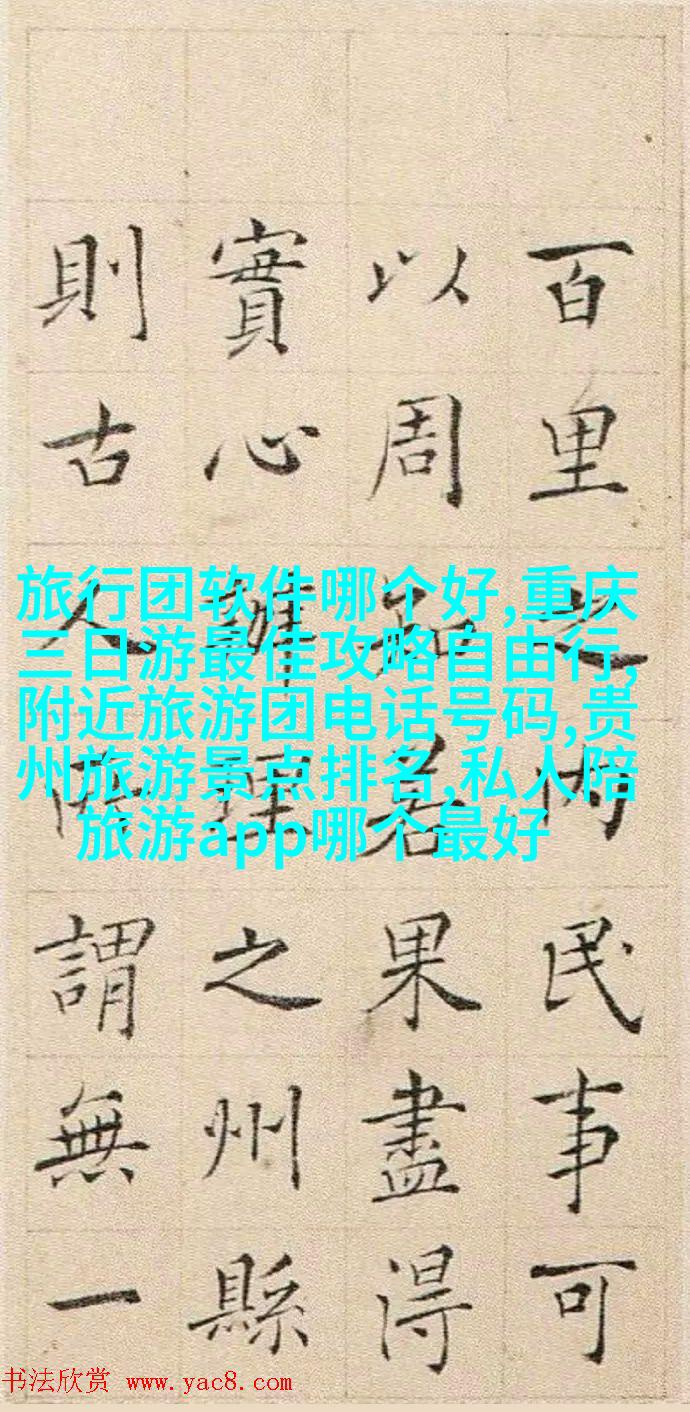 百里之内民事可
以周知若果盡得
實心辦理之州縣
則古人所謂無一
旅行团软件哪个好,重庆
三日游最佳攻略自由行,
附近旅游团电话号码,贵
州旅游景点排名,私人陪
旅游app哪个最好
书法欣赏 www.yac8.com